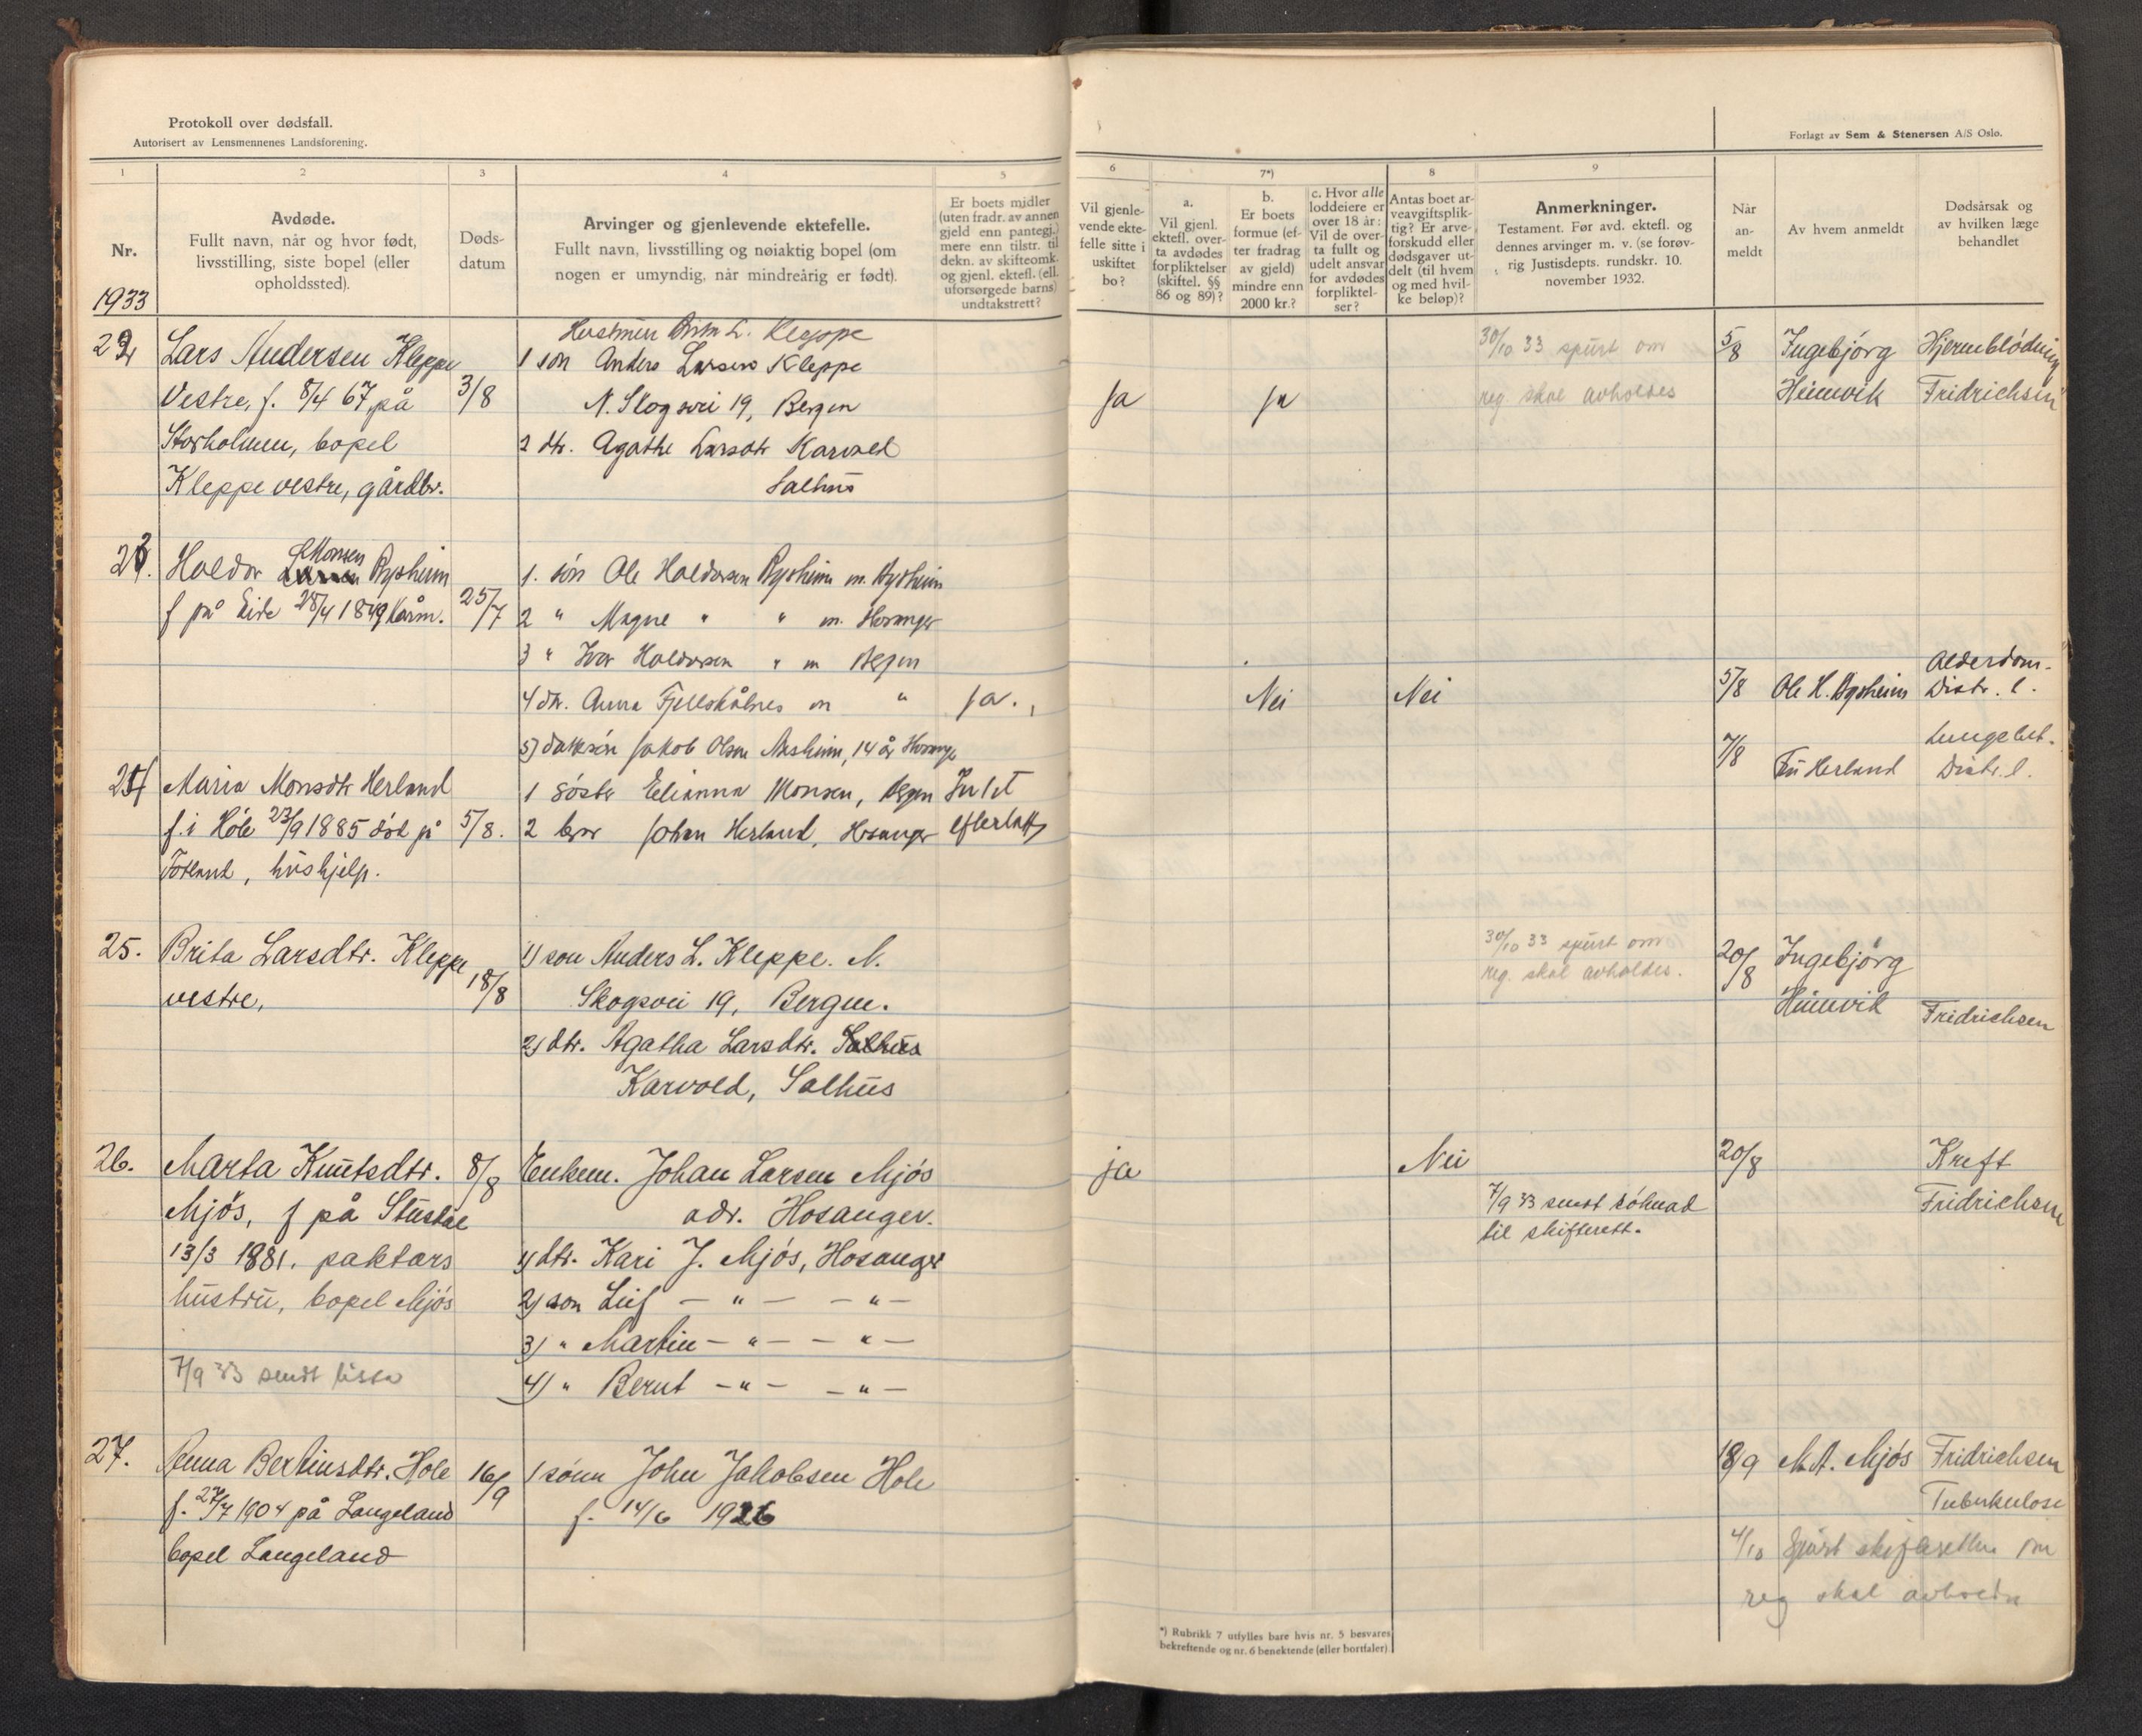 Protokoll over dødsfall.
Autorisert av Lensmennenes Landsforening.
Forlagt av Sem & Stenersen A/S Oslo.
1
2
3
4
5
6
7*)
8
9
Nr.
Avdøde.
Fullt navn, når og hvor født,
livsstilling, siste bopel (eller
opholdssted).
Døds-
datum
Arvinger og gjenlevende ektefelle.
Fullt navn, livsstilling og nøiaktig bopel (om
nogen er umyndig, når mindreårig er født).
Er boets midler
(uten fradr. av annen
gjeld enn pantegj.)
mere enn tilstr. til
dekn. av skifteomk.
og gjenl. ektefl. (ell.
uforsørgede barns)
undtakstrett?
Vil gjenle-
vende ekte-
felle sitte i
uskiftet
bo?
a.
Vil gjenl.
ektefl. over-
ta avdødes
forpliktelser
(skiftel. §§
86 og 89)?
b.
Er boets
formue (ef-
ter fradrag
av gjeld)
mindre enn
2000 kr.?
c. Hvor alle
loddeiere er
over 18 år:
Vil de over-
ta fullt og
udelt ansvar
for avdødes
forpliktel-
ser?
Antas boet ar-
veavgiftsplik-
tig? Er arve-
forskudd eller
dødsgaver ut-
delt (til hvem
og med hvil-
ke beløp)?
Anmerkninger.
Testament. Før avd. ektefl. og
dennes arvinger m. v. (se forøv-
rig Justisdepts. rundskr. 10.
november 1932.
Når
an-
meldt
Av hvem anmeldt
Dødsårsak og
av hvilken læge
behandlet
1933
22 Lars Andersen Kleppe
Vestre, f. 8/4 67, på
Storholmen, bopel
Kleppe vestre, gårdbr.
3/8
L. Kleppe
1 son Anders Larsen Kleppe
N. Skogsvei 19, Bergen
2 dtr. Agathe Larsdtr Karvold
Salhus
ja
ja
30/10 33 spurt om
reg. skal avholdes
5/8
Ingebjørg
Heimvik
Hjerneblødning
Fridrichsen
23. Haldor Monsen Bysheim
f på Eide 28/4 1849 kårm.
25/7
1. søn Ole Haldorsen Bysheim m. Bysheim
2 " Magne " " m. Hosanger
3 " Ivar Haldorsen " m Bergen
4 dtr. Anna Fjellskålnes m "
5) dattersøn Jakob Olsen Åsheim, 14 år Hosanger
ja.
Nei
Nei
5/8
Ole H. Bysheim
Alderdom.
Distr. l.
24 Maria Monsdtr Herland
f. i Hole 23/9 1885 død på
Fotland, hushjelp.
5/8.
1 søster Elianna Monsen, Bergen
2 bror Johan Herland, Hosanger
Intet
efterlatt
7/8
Herland
Lungebet.
Distr. l.
25. Brita Larsdtr. Kleppe
vestre,
18/8
1) son Anders L. Kleppe. N.
Skogsvei 19, Bergen.
2) dtr. Agatha Larsdtr. Salhus
Karvold, Salhus
30/10 33 spurt om
reg. skal avholdes.
20/8
Ingebjørg
Heimvik
Fridrichsen
26. Marta Knutsdtr.
Mjøs, f på Stusdal
13/3 1881. paktars
hustru, bopel Mjøs
7/9 33 sendt lista
8/8
Enkem. Johan Larsen Mjøs
adr. Hosanger.
1) dtr. Kari J. Mjøs, Hosanger
2) son Leif — " — — " —
3) " Martin — " — — " —
4) " Bernt — " — — " —
ja
Nei
7/9 33 sendt søknad
til skifterett.
20/8
Kreft
Fridrichsen
27. Anna Bertinsdtr. Hole
f. 27/7 1904 på Langeland
bopel Langeland
16/9
1 sønn John Jakobsen Hole
f. 14/6 1926
18/9
M.A. Mjøs
Fridrichsen
Tuberkulose
4/10 Spurt skifteretten om
reg skal avholdes
*) Rubrikk 7 utfylles bare hvis nr. 5 besvares
bekreftende og nr. 6 benektende (eller bortfaler)